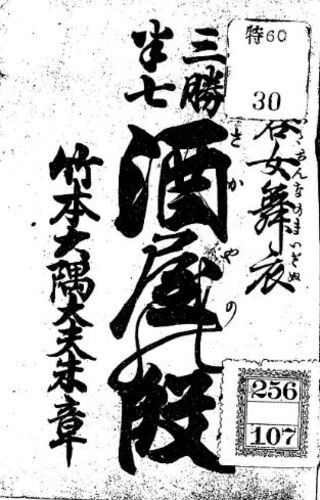 特60
30
容女舞衣
三勝
半七
酒屋の段
さかやの
竹本大隅太夫朱章
256
107